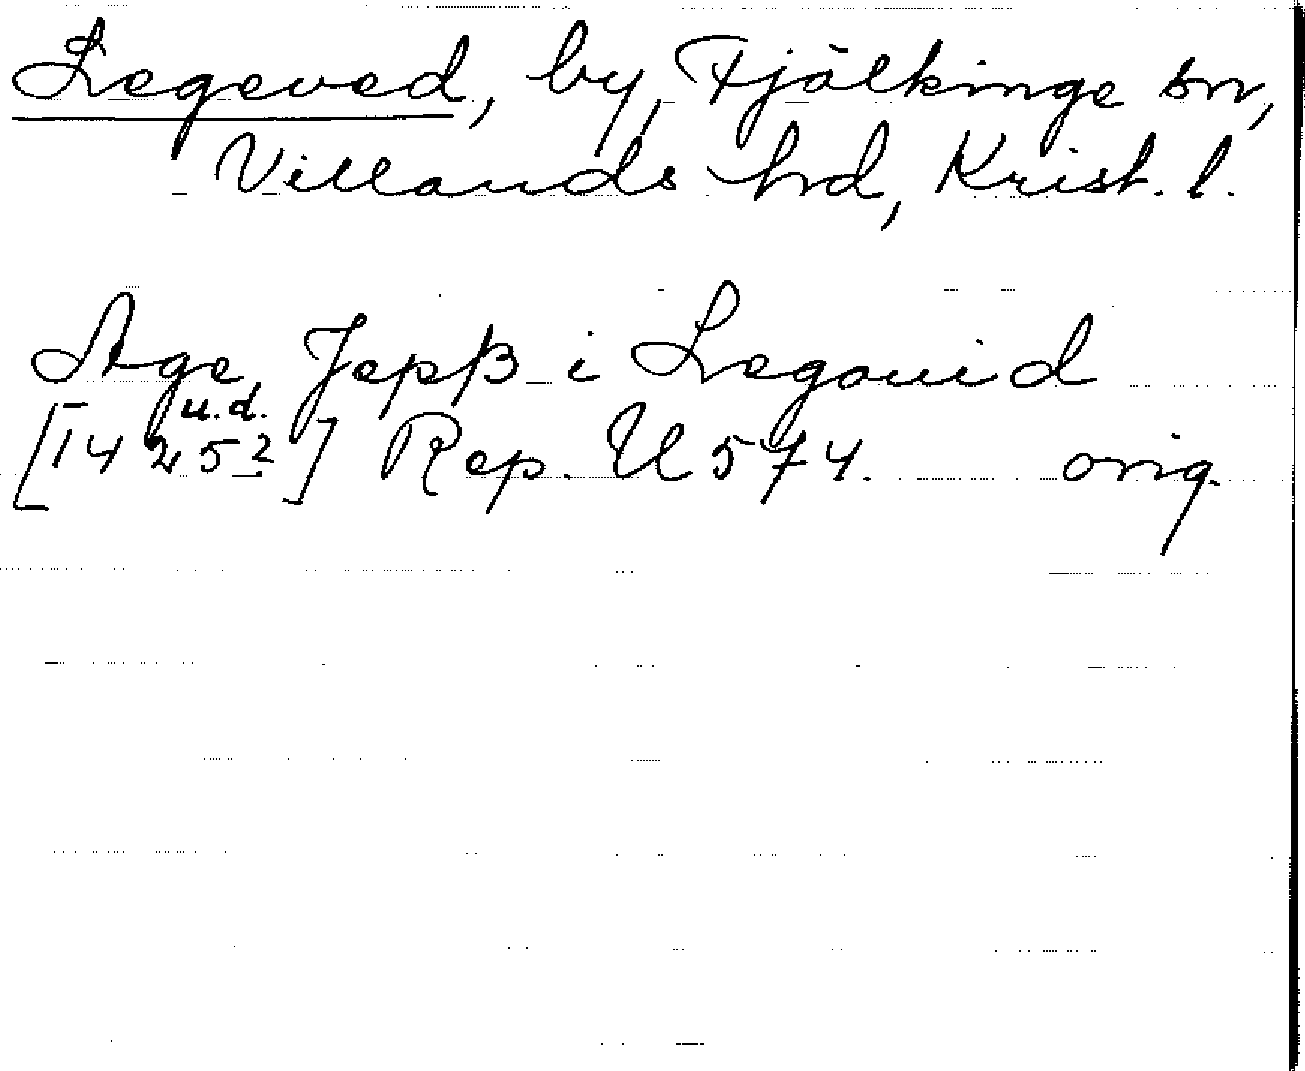 Legeved, by, Fjälkinge sn,
Villands hd, Krist. l.
Age Jepβ i Legouid
u.d.
[1425?] Rep. U 574. orig.